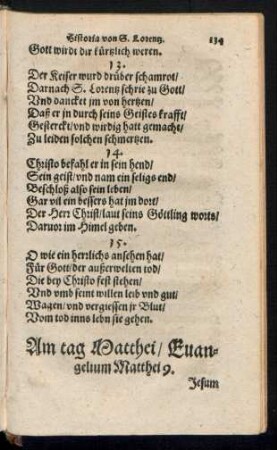 Historia von S. Lorentz. 134
Gott wirdt dir kürtzlich weren.
13.
Der Keiser wurd drüber schamrot/
Darnach S. Lorentz schrie zu Gott/
Vnd dancket jm von hertzen/
Daß er in durch seins Geistes krafft/
Gesterckt/ vnd wirdig hatt gemacht/
Zu leiden solchen schmertzen.
14.
Christo befahl er in sein hend/
Sein geist/ vnd nam ein seligs end/
Beschloß also sein leben/
Gar vil ein bessers hat jm dort/
Der Herr Christ/ laut seins Göttling worts/
Daruor im Himel geben.
15.
O wie ein herrlichs ansehen hat/
Für Gott/ der außerwelten tod/
Die bey Christo fest stehen/
Vnd vmb seint willen leib vnd gut/
Wagen/ vnd vergiessen jr Blut/
Vom tod inns lebn sie gehen.
Am tag Matthei/ Euan-
gelium Matthei 9.
Jesum